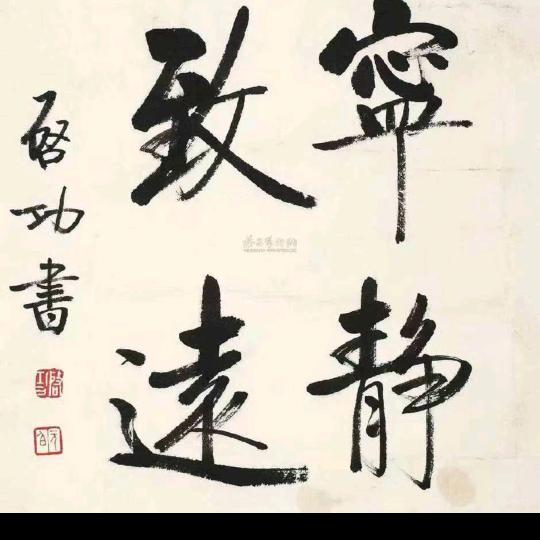 寧靜
致遠
啓功書